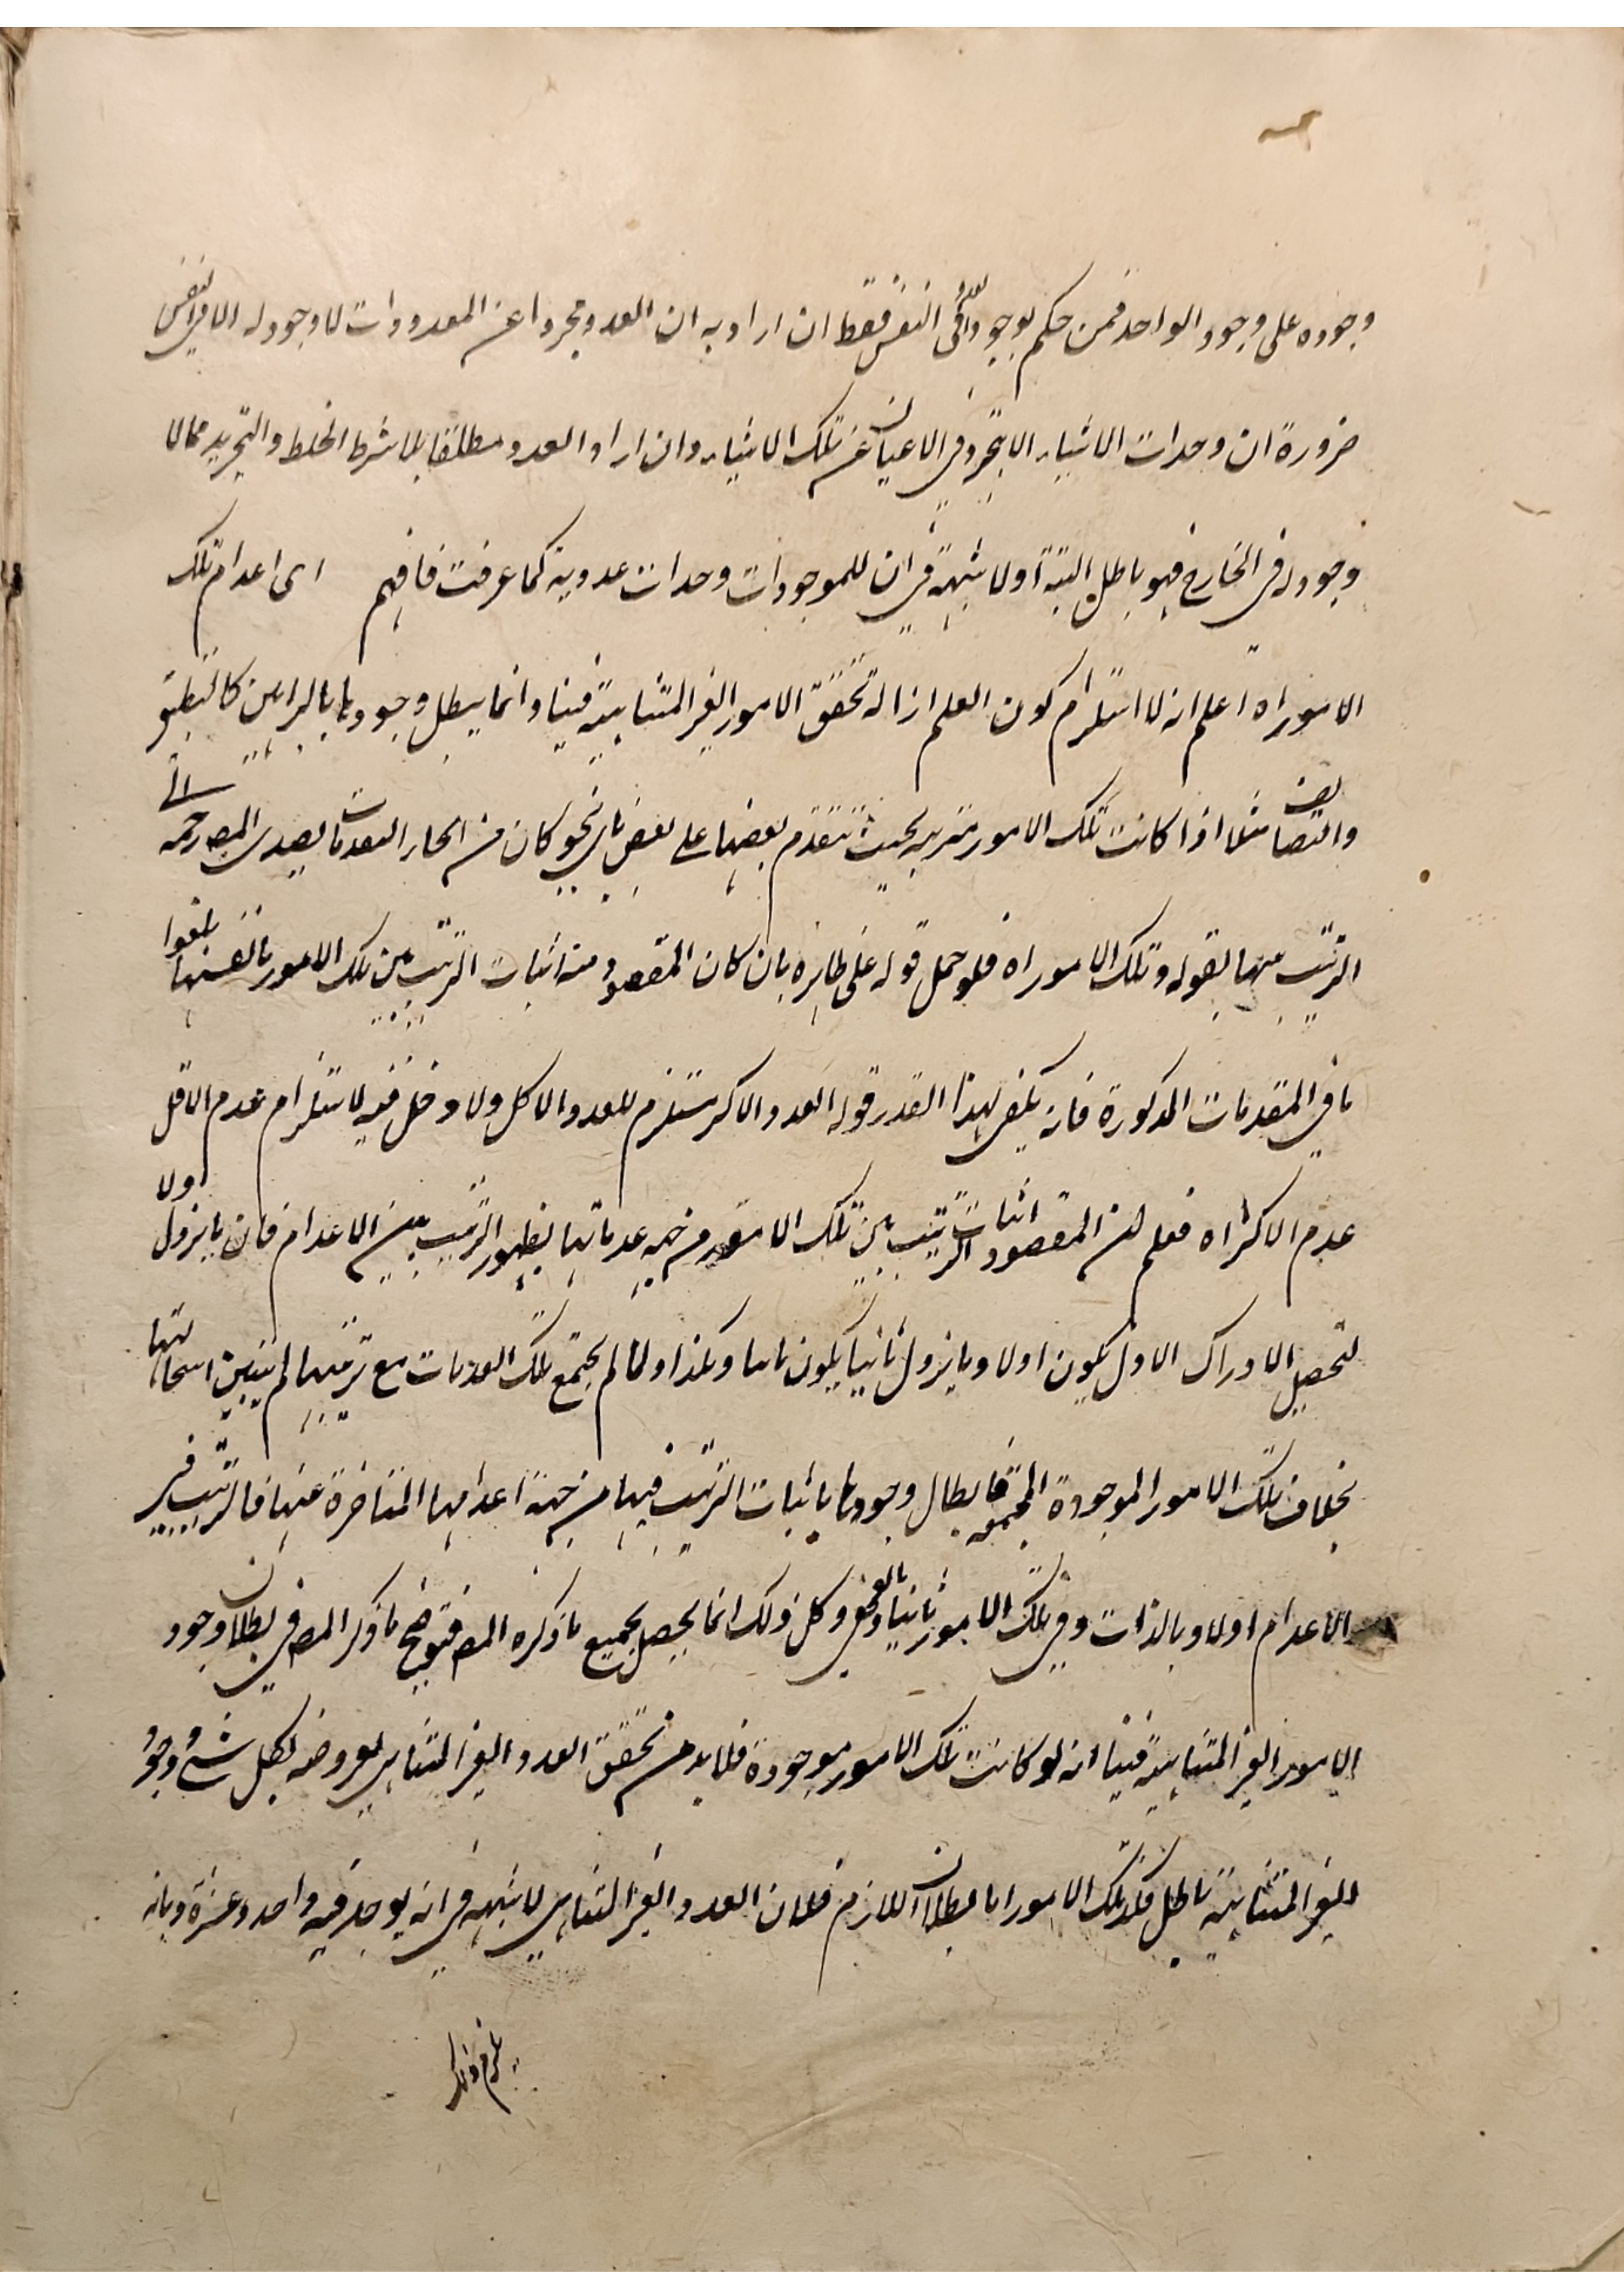 وجوده على وجود الواحد فمن حكم بوجود العدد في النفس فقط ان اراد به ان العدد مجردا عن المعدودات لا وجود له الا في النفس
ضرورة ان وحدات الاشياء لا تتجرد في الاعيان عن تلك الاشياء وان اراد العدد مطلقا بلا شرط الخلط والتجريد مما لا
وجود له في الخارج فهو باطل البتة اولا شبهة في ان للموجودات وحدات عددية كما عرفت فافهم اى اعدام تلك
الامور اه اعلم انه لا استلزم كون العلم ازالة تحقق الامور الغير المتناهية فينا وانما يبطل وجودها بالبراهين كالتطبيق
والتضايف مثلا اذا كانت تلك الامور مترتبة بحيث يتقدم بعضها على بعض باى نحو كان من انحاء التقدمات يصدى المص رحمه الله
الترتب بينها بقوله وتلك الامور اه فلو حمل قوله على ظاهره بان كان المقصود منه اثبات الترتب بين تلك الامور بانفسها يلغوا
باقي المقدمات المذكورة فانه يكفي لهذا القدر قوله العدد الاكثر مستلزم للعدد الاقل ولا دخل فيه لاستلزام عدم الاقل
عدم الاكثر اه فعلم ان المقصود اثبات الترتيب بين تلك الامور من جهة عدماتها بظهور الترتيب بين الاعدام فان ما يزول اولا
لتحصيل الادراك الاول يكون اولا وما يزول ثانيا يكون ثانيا وهكذا ولما لم يجتمع تلك العدمات مع ترتبها لم يتبين استحالتها
بخلاف تلك الامور الموجودة المجتمعة فابطال وجودها باثبات الترتب فيها من جهة اعدامها المتاخرة عنها فالترتب في
الاعدام اولا وبالذات وفي تلك الامور ثانيا وبالعرض وكل ذلك انما يحصل بجميع ما ذكره المص فتوضيح ما ذكر المص في بطلان وجود
الامور الغير المتناهية فينا انه لو كانت تلك الامور موجودة فلا بد من تحقق العدد الغير المتناهي لعروضه لكل شئ ووجود
الغير المتناهية باطل فكذا تلك الامور اما بطلان اللازم فلان العدد الغير المتناهي لا شبهة في انه يوجد فيه واحد وعشرة ومائة
يلزم ذلك